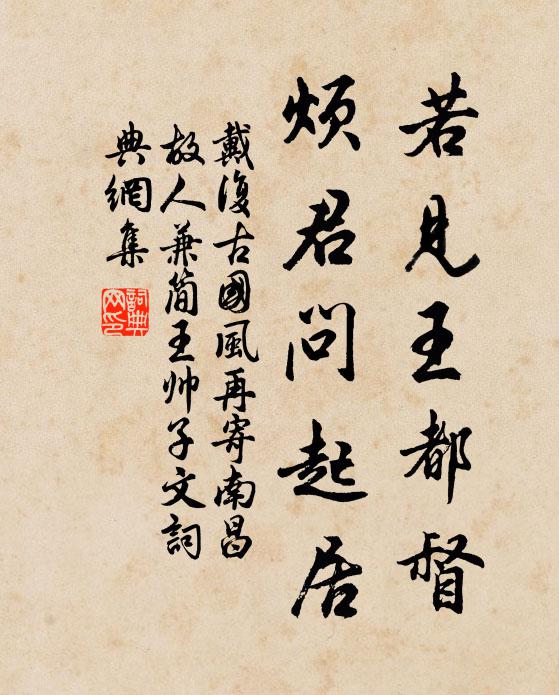 若見王都督
煩君問起居
戴復古國風再寄南昌
故人兼簡王帅子文詞
典網集
詞典網印